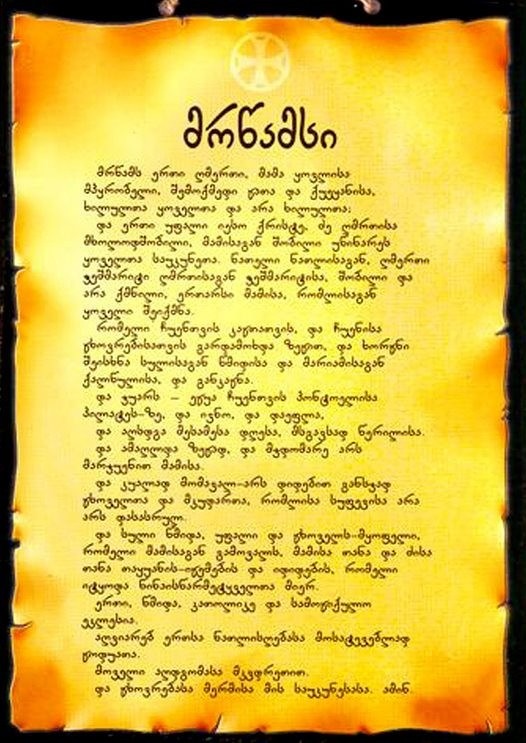 მრწამსი
მრწამს ერთი ღმერთი, მამა ყოვლისა
მპყრობელი, შემოქმედი ცათა და ქუეყანისა,
ხილულთა ყოველთა და არა ხილულთა;
და ერთი უფალი იესო ქრისტე, ძე ღმრთისა
მხოლოდშობილი, მამისაგან შობილი უწინარეს
ყოველთა საუკუნეთა. ნათელი ნათლისაგან, ღმერთი
ჯეშმარიტი ღმრთისაგან ჯეშმარიტისა, შობილი და
არა ქმნილი, ერთარსი მამისა, რომლისაგან
ყოველი შეიქმნა.
რომელი ჩუენთვის კაცთათვის, და ჩუენისა
ცხოვრებისათვის გარდამოხდა ზეცით, და ხორცნი
შეისხნა სულისაგან წმიდისა და მარიამისაგან
ქალწულისა, და განკაცნა.
და ჯუარს – ეცუა ჩუენთვის პონტოელისა
პილატეს-ზე, და ივნო, და დაეფლა,
და აღსდგა მესამესა დღესა, მსგავსად წერილისა.
და ამაღლდა ზეცად, და მჯდომარე არს
მარჯუენით მამისა.
და კუალად მომავალ-არს დიდებით განსჯად
ცხოველთა და მკუდართა, რომლისა სუფევისა არა
არს დასასრულ.
და სული წმიდა, უფალი და ცხოველს-მყოფელი,
რომელი მამისაგან გამოვალს, მამისა თანა და ძისა
თანა თაყუანის-იცემების და იდიდების, რომელი
იტყოდა წინაისწარმეტყველთა მიერ.
ერთი, წმიდა, კათოლიკე და სამოციქულო
ეკლესია.
აღვიარებ ერთსა ნათლისღებასა მოსატევებლად
ცოდუათა.
მოველი აღდგომასა მკვდრეთით.
და ცხოვრებასა მერმისა მის საუკუნესასა. ამინ.